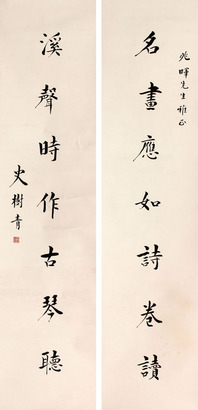 兆暉先生雅正
名畫應如詩卷讀
溪聲時作古琴聽
史樹青